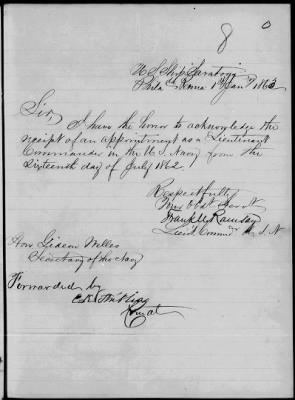 8
U S Ship Saratoga
Phila Penna 1st Jany 1863
Sir,
I have the honor to acknowledge the
receipt of an appointment as a Lieutenant
Commander in the U.S. Navy from the
Sixteenth day of July 1862.
Respectfully
Your Obdt Servt
Lieut Comm U.S.N
Hon Gideon Welles
Secretary of the Navy
Forwarded by
Comdt